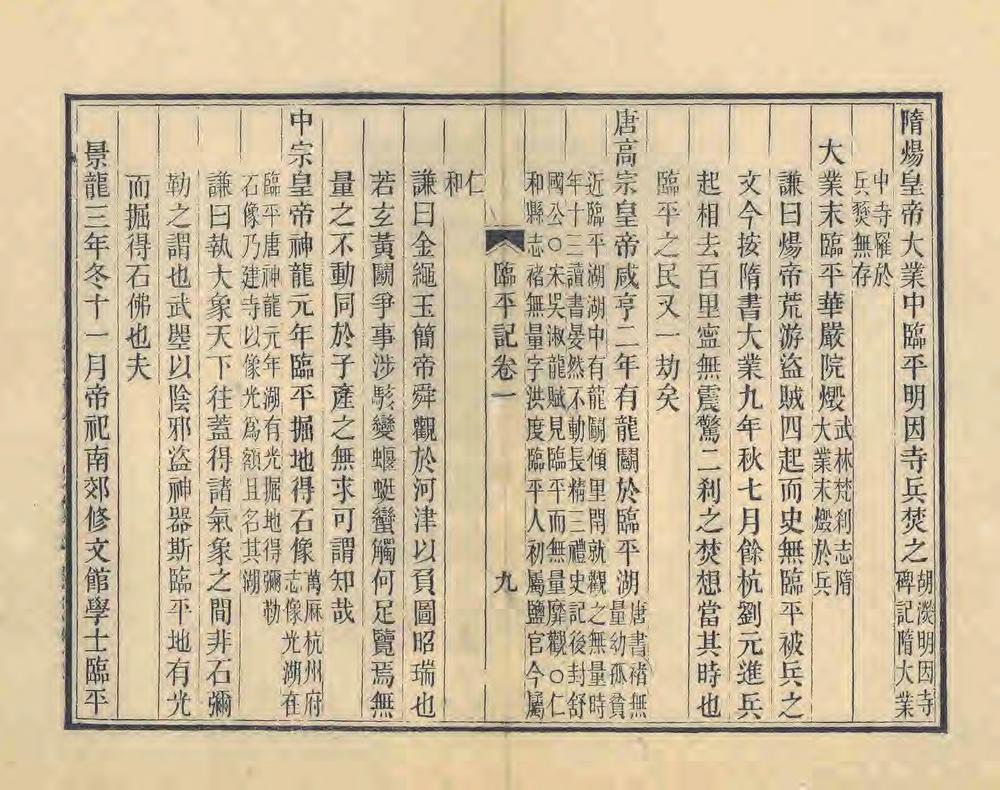 隋煬皇帝大業中臨平明因寺兵焚之胡濙明因寺
碑記隋大業
中寺罹於
兵燹無存
大業末臨平華嚴院燬武林梵刹志隋
大業末燬於兵
謙曰煬帝荒游盜賊四起而史無臨平被兵之
文今按隋書大業九年秋七月餘杭劉元進兵
起相去百里寍無震驚二刹之焚想當其時也
臨平之民又一劫矣
唐高宗皇帝咸亨二年有龍鬭於臨平湖唐書禇無
量幼孤貧
近臨平湖湖中有龍鬭傾里閈就觀之無量時
年十三讀書晏然不動長精三禮史記後封舒
國公○宋吳淑龍賦見臨平而無量靡觀○仁
和縣志禇無量字洪度臨平人初屬鹽官今屬
臨平記卷一
九
仁
和
謙曰金繩玉簡帝舜觀於河津以負圖昭瑞也
若玄黃鬭爭事涉駭變蝘蜓蠻觸何足覽焉無
量之不動同於子產之無求可謂知哉
中宗皇帝神龍元年臨平掘地得石像萬厤杭州府
志像光湖在
臨平唐神龍元年湖有光掘地得彌勒
石像乃建寺以像光爲額且名其湖
謙曰執大象天下往蓋得諸氣象之間非石彌
勒之謂也武曌以陰邪盜神器斯臨平地有光
而掘得石佛也夫
景龍三年冬十一月帝祀南郊修文館學士臨平